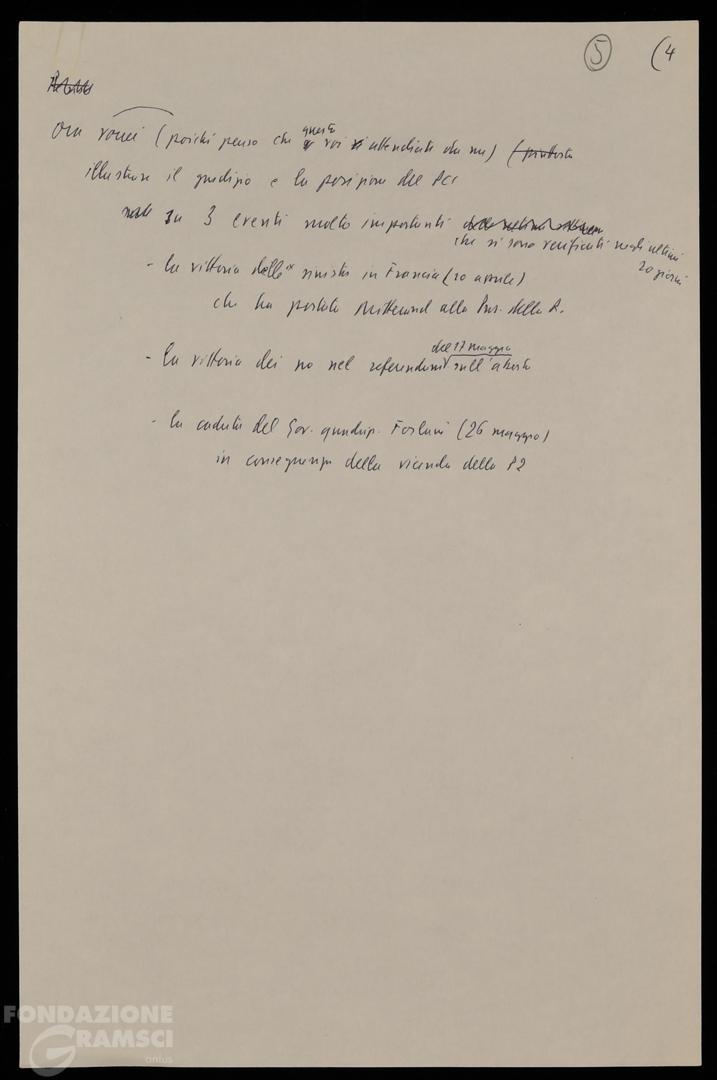 5 (4
Ora vorrei (poiché penso che questo voi vi attendiate da me)
illustrare il giudizio e la posizione del PCI
su 3 eventi molto importanti
che si sono verificati negli ultimi
20 giorni
- la vittoria della sinistra in Francia (10
che ha portato Mitterand alla Pres. della R.
del 17 maggio
- la vittoria dei no nel referendum sull'aborto
- la caduta del Gov. quadrip. Forlani (26 maggio)
in conseguenza della vicenda della P2
FONDAZIONE
GRAMSCI
onlus